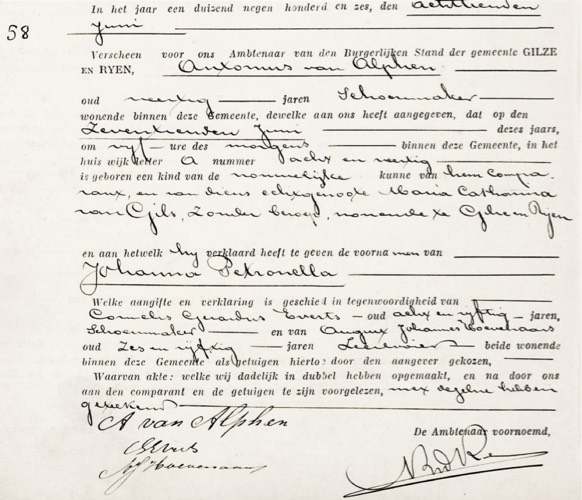 58
In het jaar een duizend negen honderd en zes, den achttienden
Juni
Verscheen voor ons Ambtenaar van den Burgerlijken Stand der gemeente GILZE
EN RYEN, Antonius van Alphen
oud veertig jaren Schoenmaker
wonende binnen deze Gemeente, dewelke aan ons heeft aangegeven, dat op den
Zeventienden Juni dezes jaars,
om vyf ure des morgens binnen deze Gemeente, in het
huis wijk letter A nummer acht en veertig
is geboren een kind van de vrouwelijke kunne van hem compa-
rant, en van diens echtgenoote Maria Catharina
van Gils, Zonder beroep, wonende te Gilze en Ryen
en aan hetwelk hy verklaard heeft te geven de voornamen van
Johanna Petronella
Welke aangifte en verklaring is geschied in tegenwoordigheid van
Cornelis Gerardus Everts oud acht en vyftig jaren,
Schoenmaker en van August Johannes Hoevenaars
oud Zes en vyftig jaren beide wonende
binnen deze Gemeente als getuigen hiertoe door den aangever gekozen,
Waarvan akte: welke wij dadelijk in dubbel hebben opgemaakt, en na door ons
aan den comparant en de getuigen te zijn voorgelezen, met dezelve hebben
geteekend
A van Alphen
De Ambtenaar voornoemd,
Everts
Hoevenaars